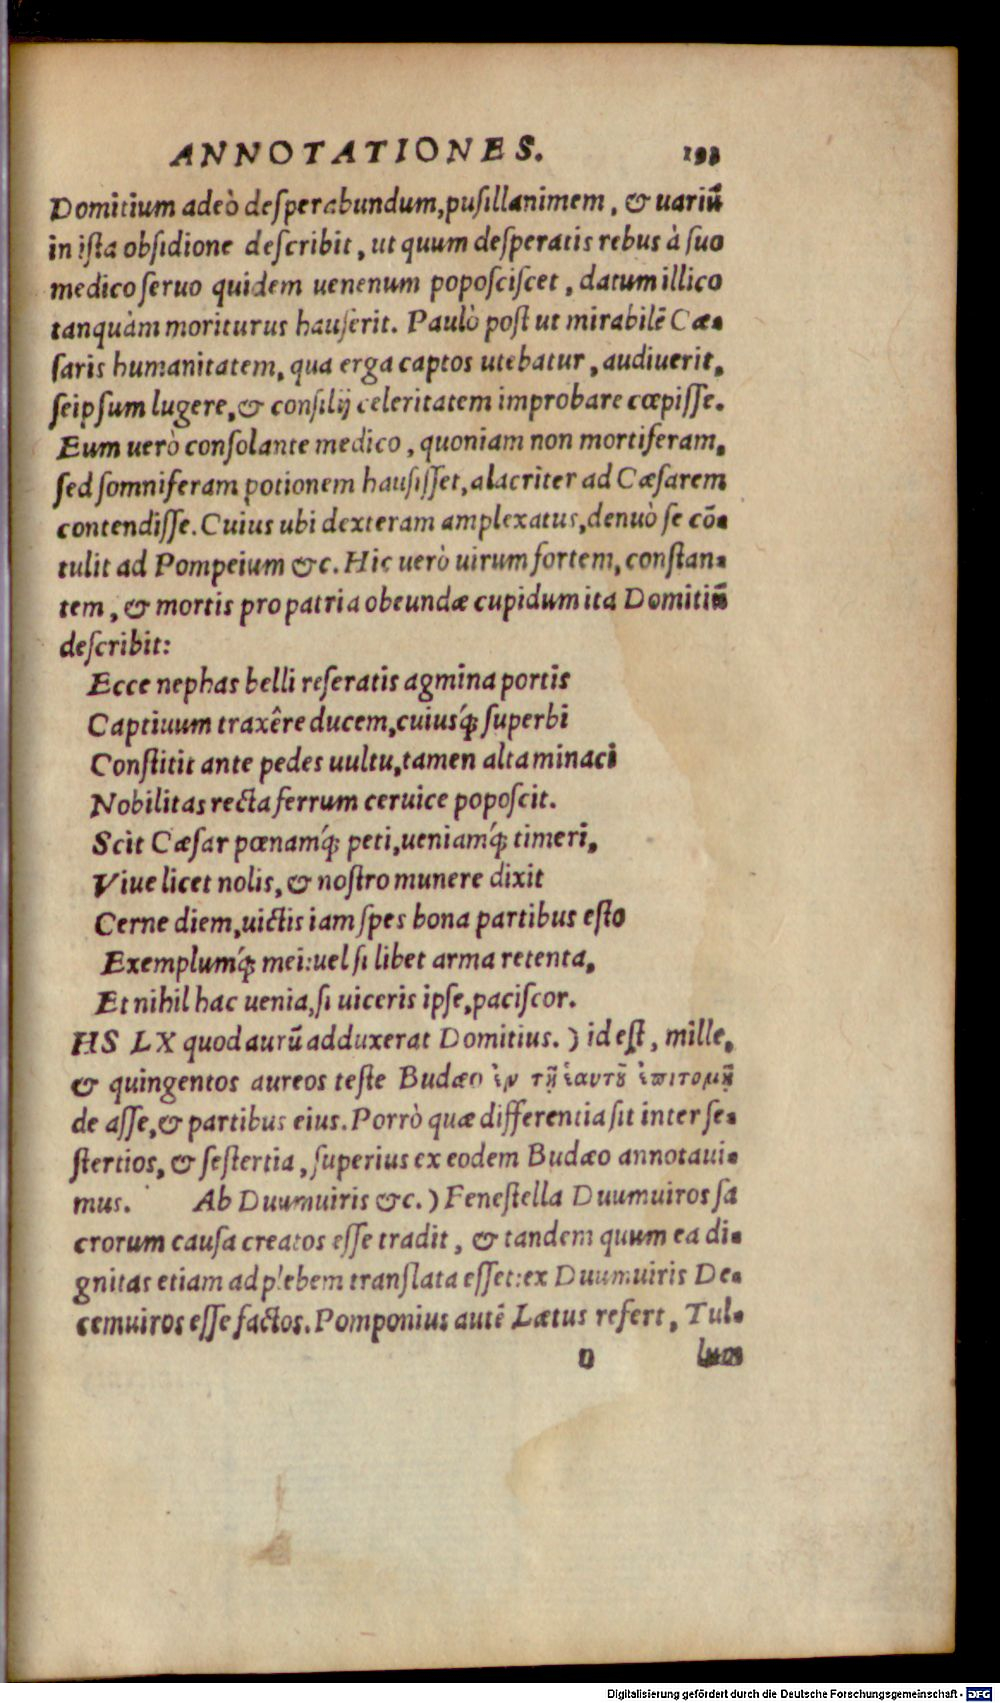 ANNOTATIONES. 193
Domitium adeò deſperabundum,puſillanimem, & uariũ
in iſta obſidione deſcribit, ut quum deſperatis rebus à ſuo
medico ſeruo quidem uenenum popoſciſcet, datum illico
tanquàm moriturus hauſerit. Paulò poſt ut mirabilẽ Cæ-
ſaris humanitatem, qua erga captos utebatur, audiuerit,
ſeipſum lugere,& conſilij celeritatem improbare cœpiſſe.
Eum uerò conſolante medico, quoniam non mortiferam,
ſed ſomniferam potionem hauſiſſet,alacriter ad Cæſarem
contendiſſe. Cuius ubi dexteram amplexatus,denuò ſe cõ-
tulit ad Pompeium &c. Hic uerò uirum fortem, conſtan-
tem, & mortis pro patria obeundæ cupidum ita Domitiũ
deſcribit:
Ecce nephas belli reſeratis agmina portis
Captiuum traxêre ducem,cuiusq́; ſuperbi
Conſtitit ante pedes uultu,tamen alta minaci
Nobilitas recta ferrum ceruice popoſcit.
Scit Cæſar pœnamq́; peti,ueniamq́; timeri,
Viue licet nolis, & noſtro munere dixit
Cerne diem,uictis iam ſpes bona partibus eſto
Exemplumq́; mei:uel ſi libet arma retenta,
Et nihil hac uenia,ſi uiceris ipſe,paciſcor.
HS LX quod aurũ adduxerat Domitius. ) id eſt, mille,
& quingentos aureos teſte Budæo ἐν τῇ ἑαυτȣ͂ ἐπιτομῇ
de aſſe,& partibus eius. Porrò quæ differentia ſit inter ſe-
ſtertios, & ſeſtertia, ſuperius ex eodem Budæo annotaui-
mus. Ab Duumuiris &c. ) Feneſtella Duumuiros ſa
crorum cauſa creatos eſſe tradit, & tandem quum ea di-
gnitas etiam ad plebem tranſlata eſſet:ex Duumuiris De-
cemuiros eſſe factos. Pomponius autẽ Lætus refert, Tul-
lum
Digitalisierung gefördert durch die Deutsche Forschungsgemeinschaft - DFG